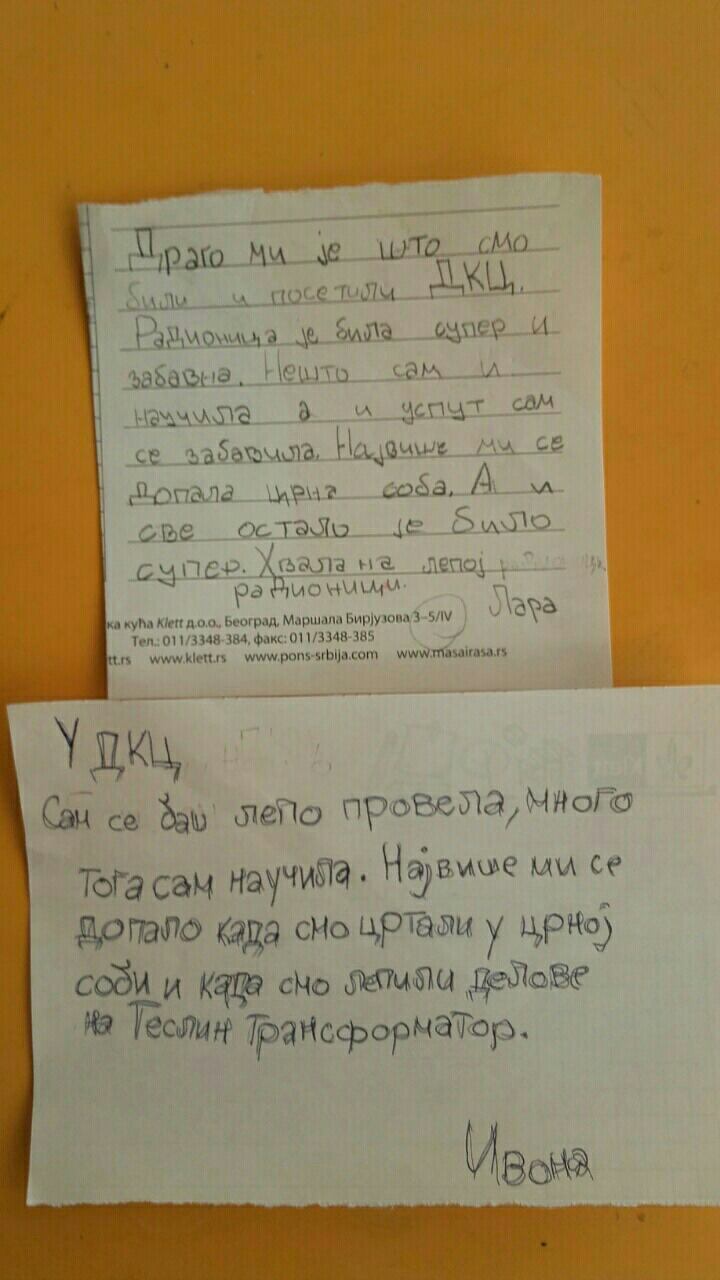 Драго ми је што смо
били и посетили ДКЦ.
Радионица је била супер и
забавна. Нешто сам и
научила а и успут сам
се забавила. Највише ми се
допала црна соба. А и
све остало је било
супер. Хвала на лепој
радионици.
Лара
ка кућа Klett д.о.о., Београд, Маршала Бирјузова 3–5/IV
Тел.: 011/3348-384, факс: 011/3348-385
tt.rs www.klett.rs www.pons-srbija.com www.masairasa.rs
У ДКЦ
Сам се баш лепо провела, много
тога сам научила. Највише ми се
допало када смо цртали у црној
соби и када смо лепили делове
на Теслин трансформатор.
Ивона